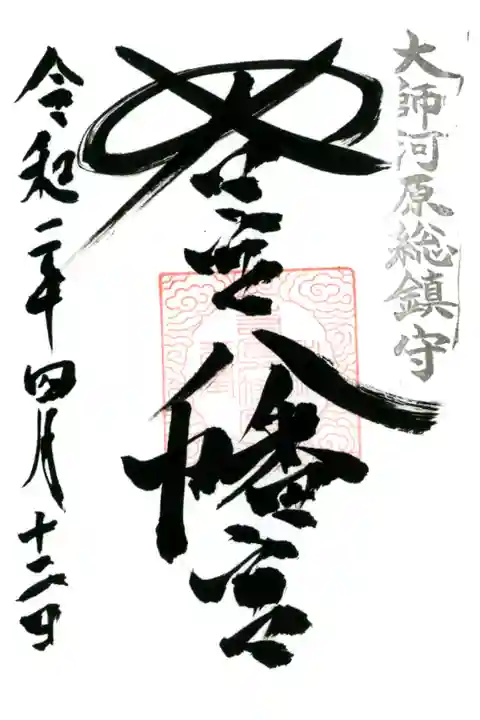 大師河原総鎮守
若宮八幡宮
令和二年四月十二日